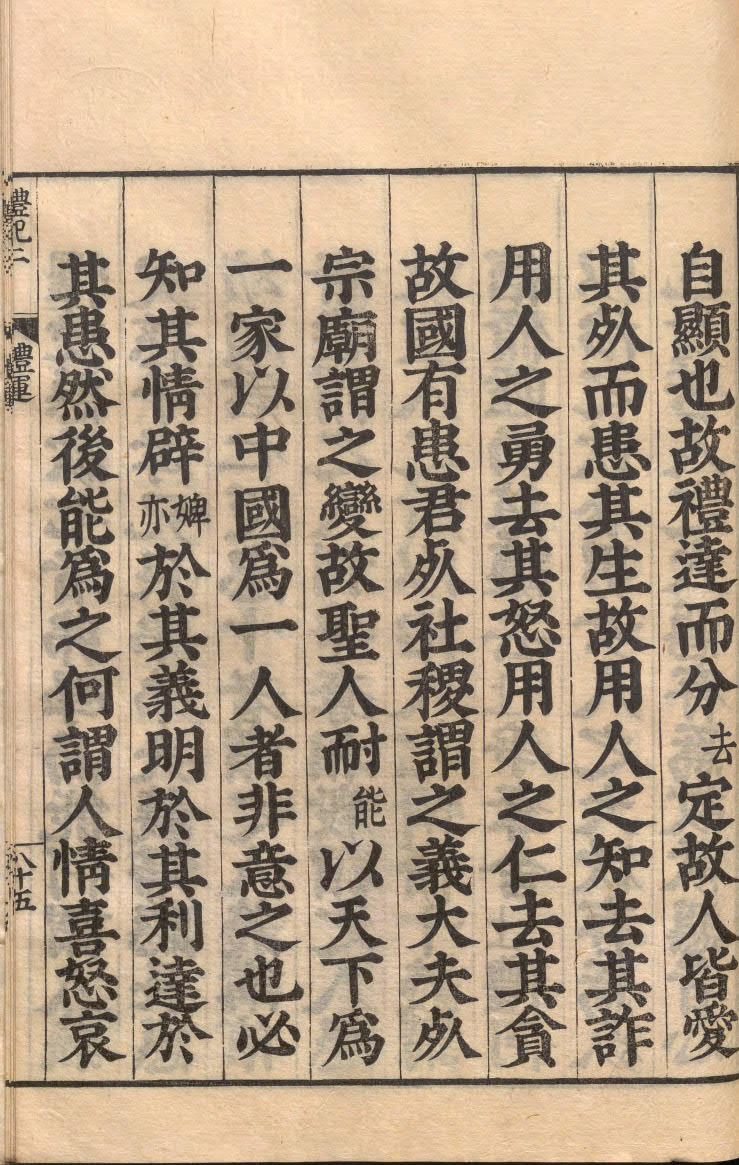 自顯也故禮達而分去定故人皆愛
其死而患其生故用人之知去其詐
用人之勇去其怒用人之仁去其貪
故國有患君死社稷謂之義大夫死
宗廟謂之變故聖人耐能以天下爲
一家以中國爲一人者非意之也必
知其情辟婢亦於其義明於其利達於
其患然後能爲之何謂人情喜怒哀
禮記二 禮運 八十五